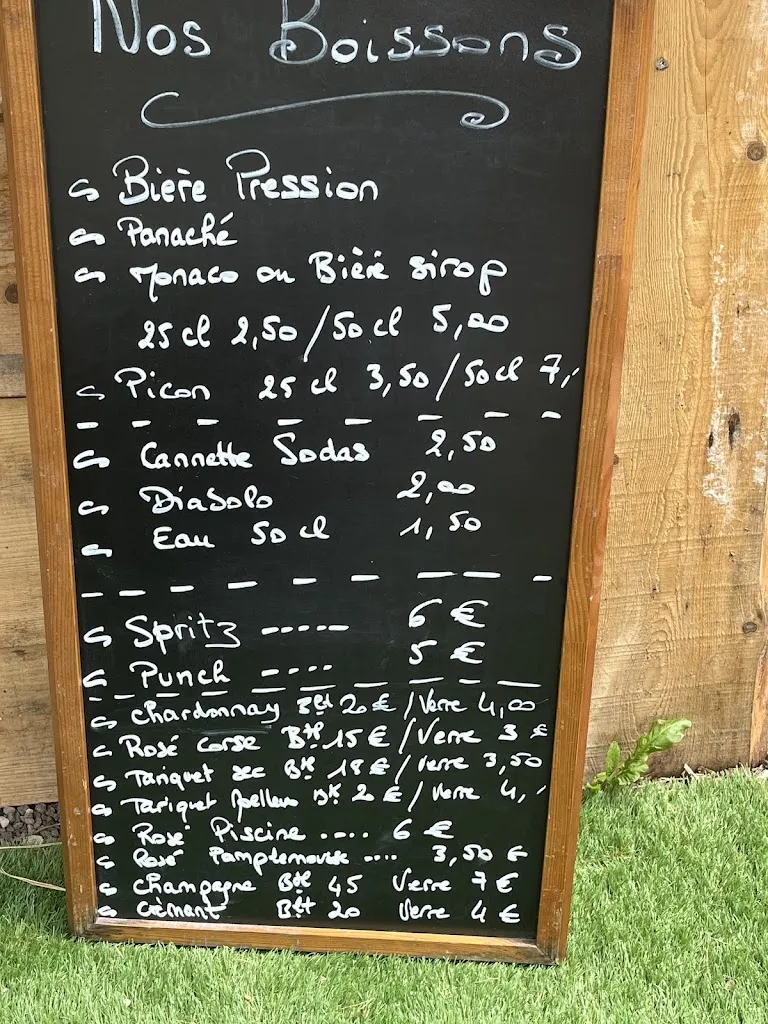 Nos Boissons
Bière Pression
Panaché
Monaco ou Bière sirop
25 cl 2,50 / 50 cl 5,00
Picon 25 cl 3,50 / 50 cl 7,-
Cannette Sodas 2,50
Diabolo 2,00
Eau 50 cl 1,50
Spritz ----- 6 €
Punch ---- 5 €
Chardonnay Btl 20 € / Verre 4,00
Rosé Corse Btl 15 € / Verre 3 €
Tariquet sec Btl 18 € / Verre 3,50
Tariquet Moelleux Btl 20 € / Verre 4,-
Rosé Piscine .... 6 €
Rosé Pamplemousse .... 3,50 €
Champagne Btl 45 Verre 7 €
Crémant Btl 20 Verre 4 €